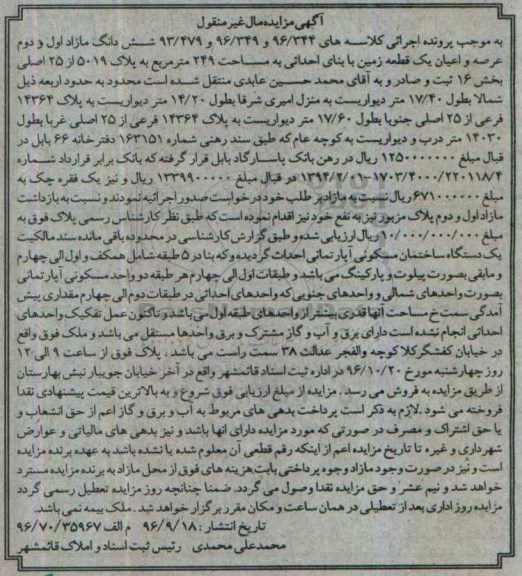 آگهی مزایده مال غیر منقول
به موجب پرونده اجرائی کلاسه های ۹۶/۳۴۴ و ۹۶/۳۴۹ و ۹۳/۴۷۹ شش دانگ مازاد اول و دوم
عرصه و اعیان یک قطعه زمین با بنای احداثی به مساحت ۲۴۹ مترمربع به پلاک ۵۰۱۹ از ۲۵ اصلی
بخش ۱۶ ثبت و صادر و به آقای محمد حسین عابدی منتقل شده است محدود به حدود اربعه ذیل
شمالا بطول ۱۷/۴۰ متر دیواریست به منزل امیری شرقا بطول ۱۴/۲۰ متر دیواریست به پلاک ۱۴۳۶۴
فرعی از ۲۵ اصلی جنوبا بطول ۱۷/۶۰ متر دیواریست به پلاک ۱۴۳۶۴ فرعی از ۲۵ اصلی غربا بطول
۱۴۰۳۰ متر درب و دیواریست به کوچه عام که طبق سند رهنی شماره ۱۶۳۱۵۱ دفترخانه ۶۶ بابل در
قبال مبلغ ۱۲۵۰۰۰۰۰۰۰ ریال در رهن بانک پاسارگاد بابل قرار گرفته که بانک برابر قرارداد شماره
۱۳۹۴/۲/۰۱-۱۷۰۳/۴۰۰۰/۲۲۰۱۱۸/۴ در قبال مبلغ ۱۳۳۹۹۰۰۰۰۰ ریال و نیز یک فقره چک به
مبلغ ۶۷۱۰۰۰۰۰۰ ریال نسبت به مازاد بر طلب خود درخواست صدور اجرائیه نمودند و نسبت به بازداشت
مازاد اول و دوم پلاک مزبور نیز به نفع خود نیز اقدام نموده است که طبق نظر کارشناس رسمی پلاک فوق به
مبلغ ۱۰/۰۰۰/۰۰۰/۰۰۰ ریال ارزیابی شده و طبق گزارش کارشناسی در محدوده باقی مانده سند مالکیت
یک دستگاه ساختمان مسکونی آپارتمانی احداث گردیده و که بنا در ۵ طبقه شامل همکف و اول الی چهارم
و مابقی بصورت پیلوت و پارکینگ می باشد و طبقات اول الی چهارم هر طبقه دو واحد مسکونی آپارتمانی
بصورت واحدهای شمالی و واحدهای جنوبی که واحدهای احداثی در طبقات دوم الی چهارم مقداری پیش
آمدگی سمت خ مساحت آنها قدری بیشتر از واحدهای طبقه اول می باشد و تاکنون عمل تفکیک واحدهای
احداثی انجام نشده است دارای برق و آب و گاز مشترک و برق واحدها مستقل می باشد و ملک فوق واقع
در خیابان کفشگرکلا کوچه والفجر عدالت ۳۸ سمت راست می باشد . پلاک فوق از ساعت ۹ الی ۱۲
روز چهارشنبه مورخ ۹۶/۱۰/۲۰ در اداره ثبت اسناد قائمشهر واقع در آخر خیابان جویبار نبش بهارستان
از طریق مزایده به فروش می رسد . مزایده از مبلغ ارزیابی فوق شروع و به بالاترین قیمت پیشنهادی نقدا
فروخته می شود . لازم به ذکر است پرداخت بدهی های مربوط به آب و برق و گاز اعم از حق انشعاب و
یا حق اشتراک و مصرف در صورتی که مورد مزایده دارای آنها باشد و نیز بدهی های مالیاتی و عوارض
شهرداری و غیره تا تاریخ مزایده اعم از اینکه رقم قطعی آن معلوم شده یا نشده باشد به عهده برنده مزایده
است و نیز در صورت وجود مازاد وجوه پرداختی بابت هزینه های فوق از محل مازاد به برنده مزایده مسترد
خواهد شد و نیم عشر و حق مزایده نقدا وصول می گردد. ضمنا چنانچه روز مزایده تعطیل رسمی گردد
مزایده روز اداری بعد از تعطیلی در همان ساعت و مکان مقرر برگزار خواهد شد . ملک بیمه نمی باشد.
تاریخ انتشار : ۹۶/۹/۱۸ م الف ۹۶/۷۰/۳۵۹۶۷
محمدعلی محمدی رئیس ثبت اسناد و املاک قائمشهر